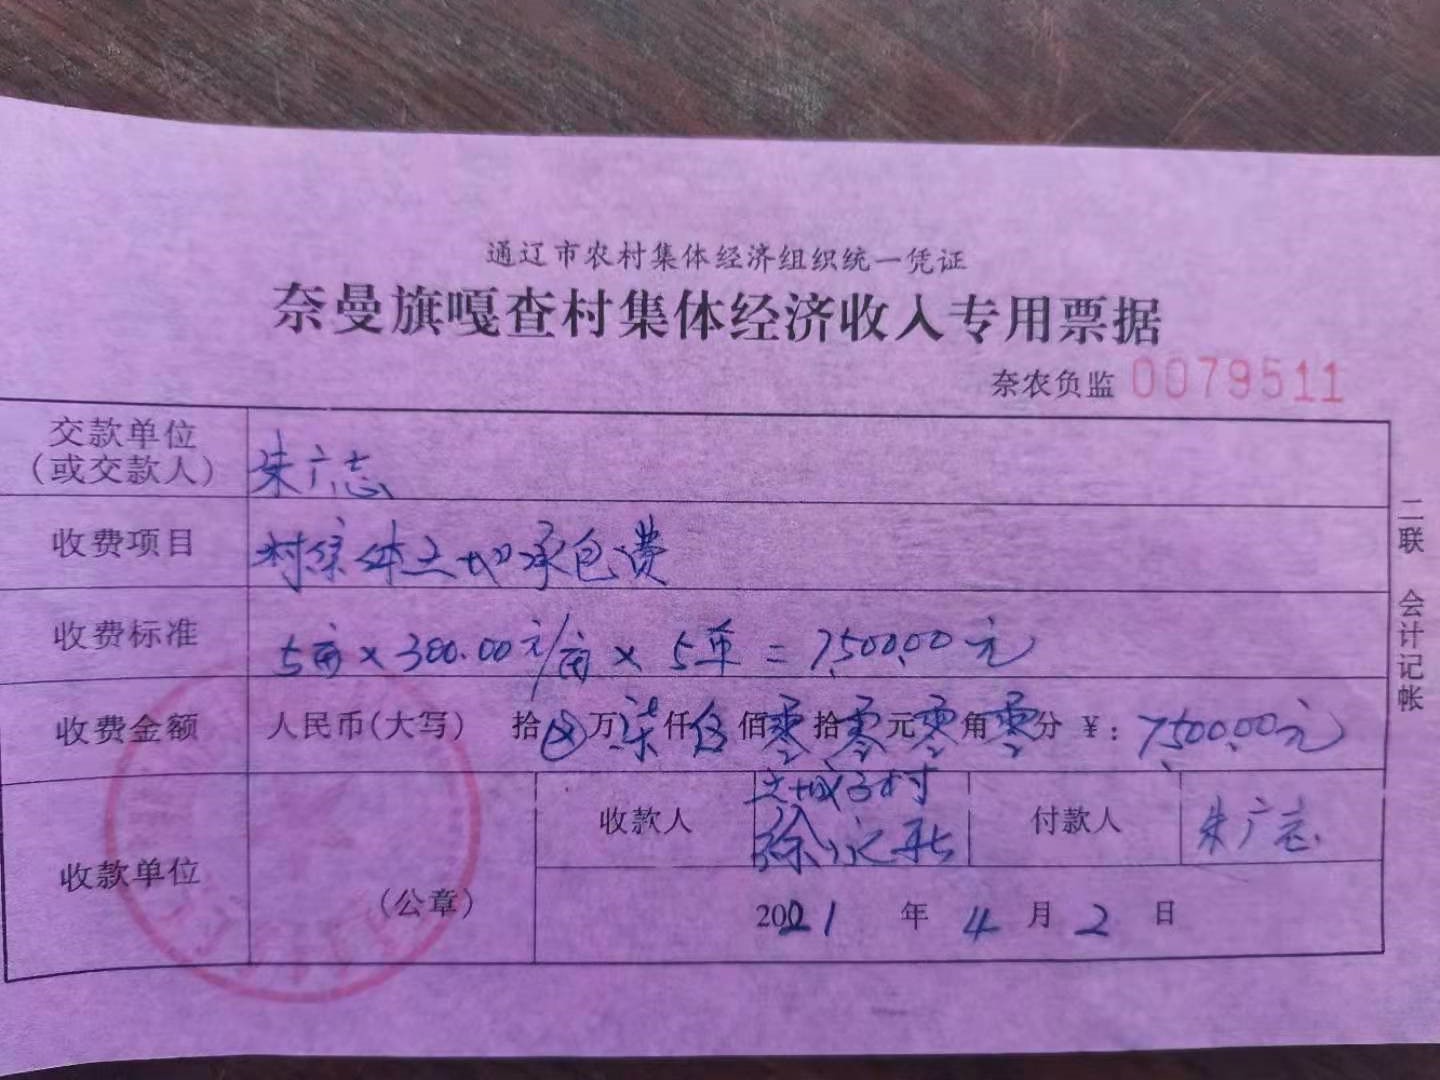 通辽市农村集体经济组织统一凭证
奈曼旗嘎查村集体经济收入专用票据
奈农负监 0079511
交款单位
(或交款人) 朱广志
收费项目 村集体土地承包费
收费标准 5亩×300.00元/亩×5年=7500.00元
收费金额 人民币(大写) 拾⊗万柒仟伍佰零拾零元零角零分 ¥:7500.00元
收款单位 (公章) 收款人 土城子村
付款人 朱广志
2021年4月2日
二联 会计记帐